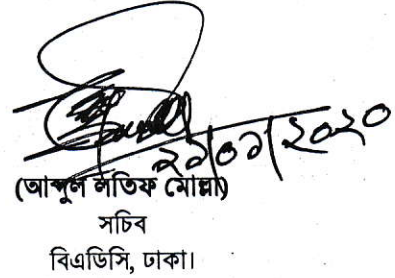 ২৭|০৭|২০২০
(আব্দুল লতিফ মোল্লা)
সচিব
বিএডিসি, ঢাকা।